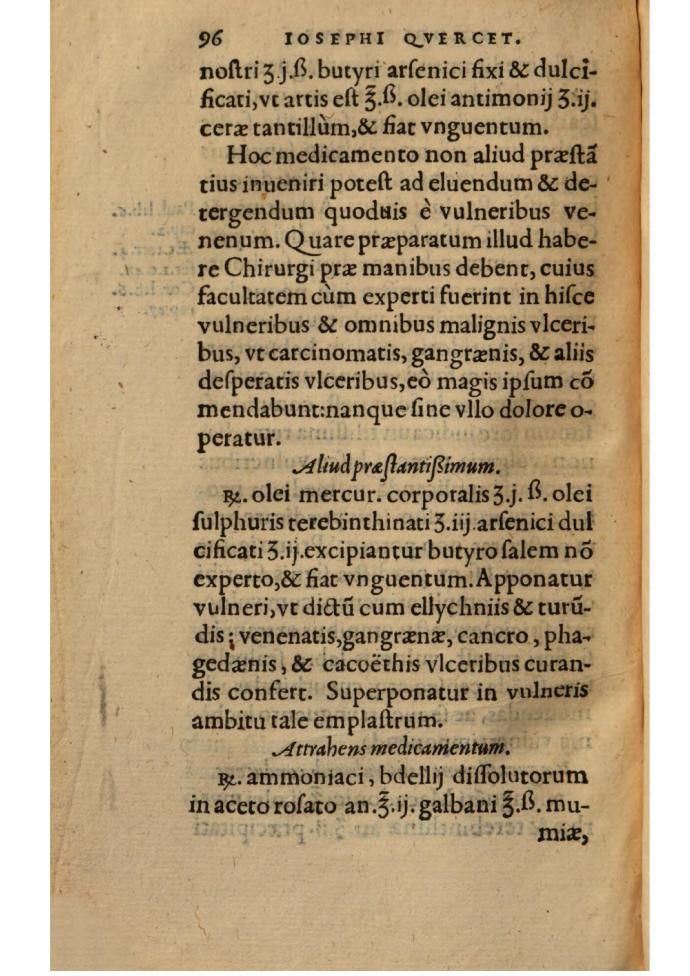 96 IOSEPHI QVERCET.
noſtri ʒ.j.ß. butyri arſenici fixi & dulci-
ficati,vt artis eſt ℥.ß. olei antimonij ʒ.ij.
ceræ tantillùm,& fiat vnguentum.
Hoc medicamento non aliud præſtã
tius inueniri poteſt ad eluendum & de-
tergendum quoduis è vulneribus ve-
nenum. Quare præparatum illud habe-
re Chirurgi præ manibus debent, cuius
facultatem cùm experti fuerint in hiſce
vulneribus & omnibus malignis vlceri-
bus, vt carcinomatis, gangrænis, & aliis
deſperatis vlceribus,eò magis ipſum cõ
mendabunt:nanque ſine vllo dolore o-
peratur.
Aliud præſtantißimum.
℞. olei mercur. corporalis ʒ.j. ß. olei
ſulphuris terebinthinati ʒ.iij.arſenici dul
cificati ʒ.ij.excipiantur butyro ſalem nõ
experto,& fiat vnguentum. Apponatur
vulneri,vt dictũ cum ellychniis & turũ-
dis; venenatis,gangrænæ, cancro, pha-
gedænis, & cacoëthis vlceribus curan-
dis confert. Superponatur in vulneris
ambitu tale emplaſtrum.
Attrahens medicamentum.
℞. ammoniaci, bdellij diſſolutorum
in aceto roſato an.℥.ij. galbani ℥.ß. mu-
miæ,